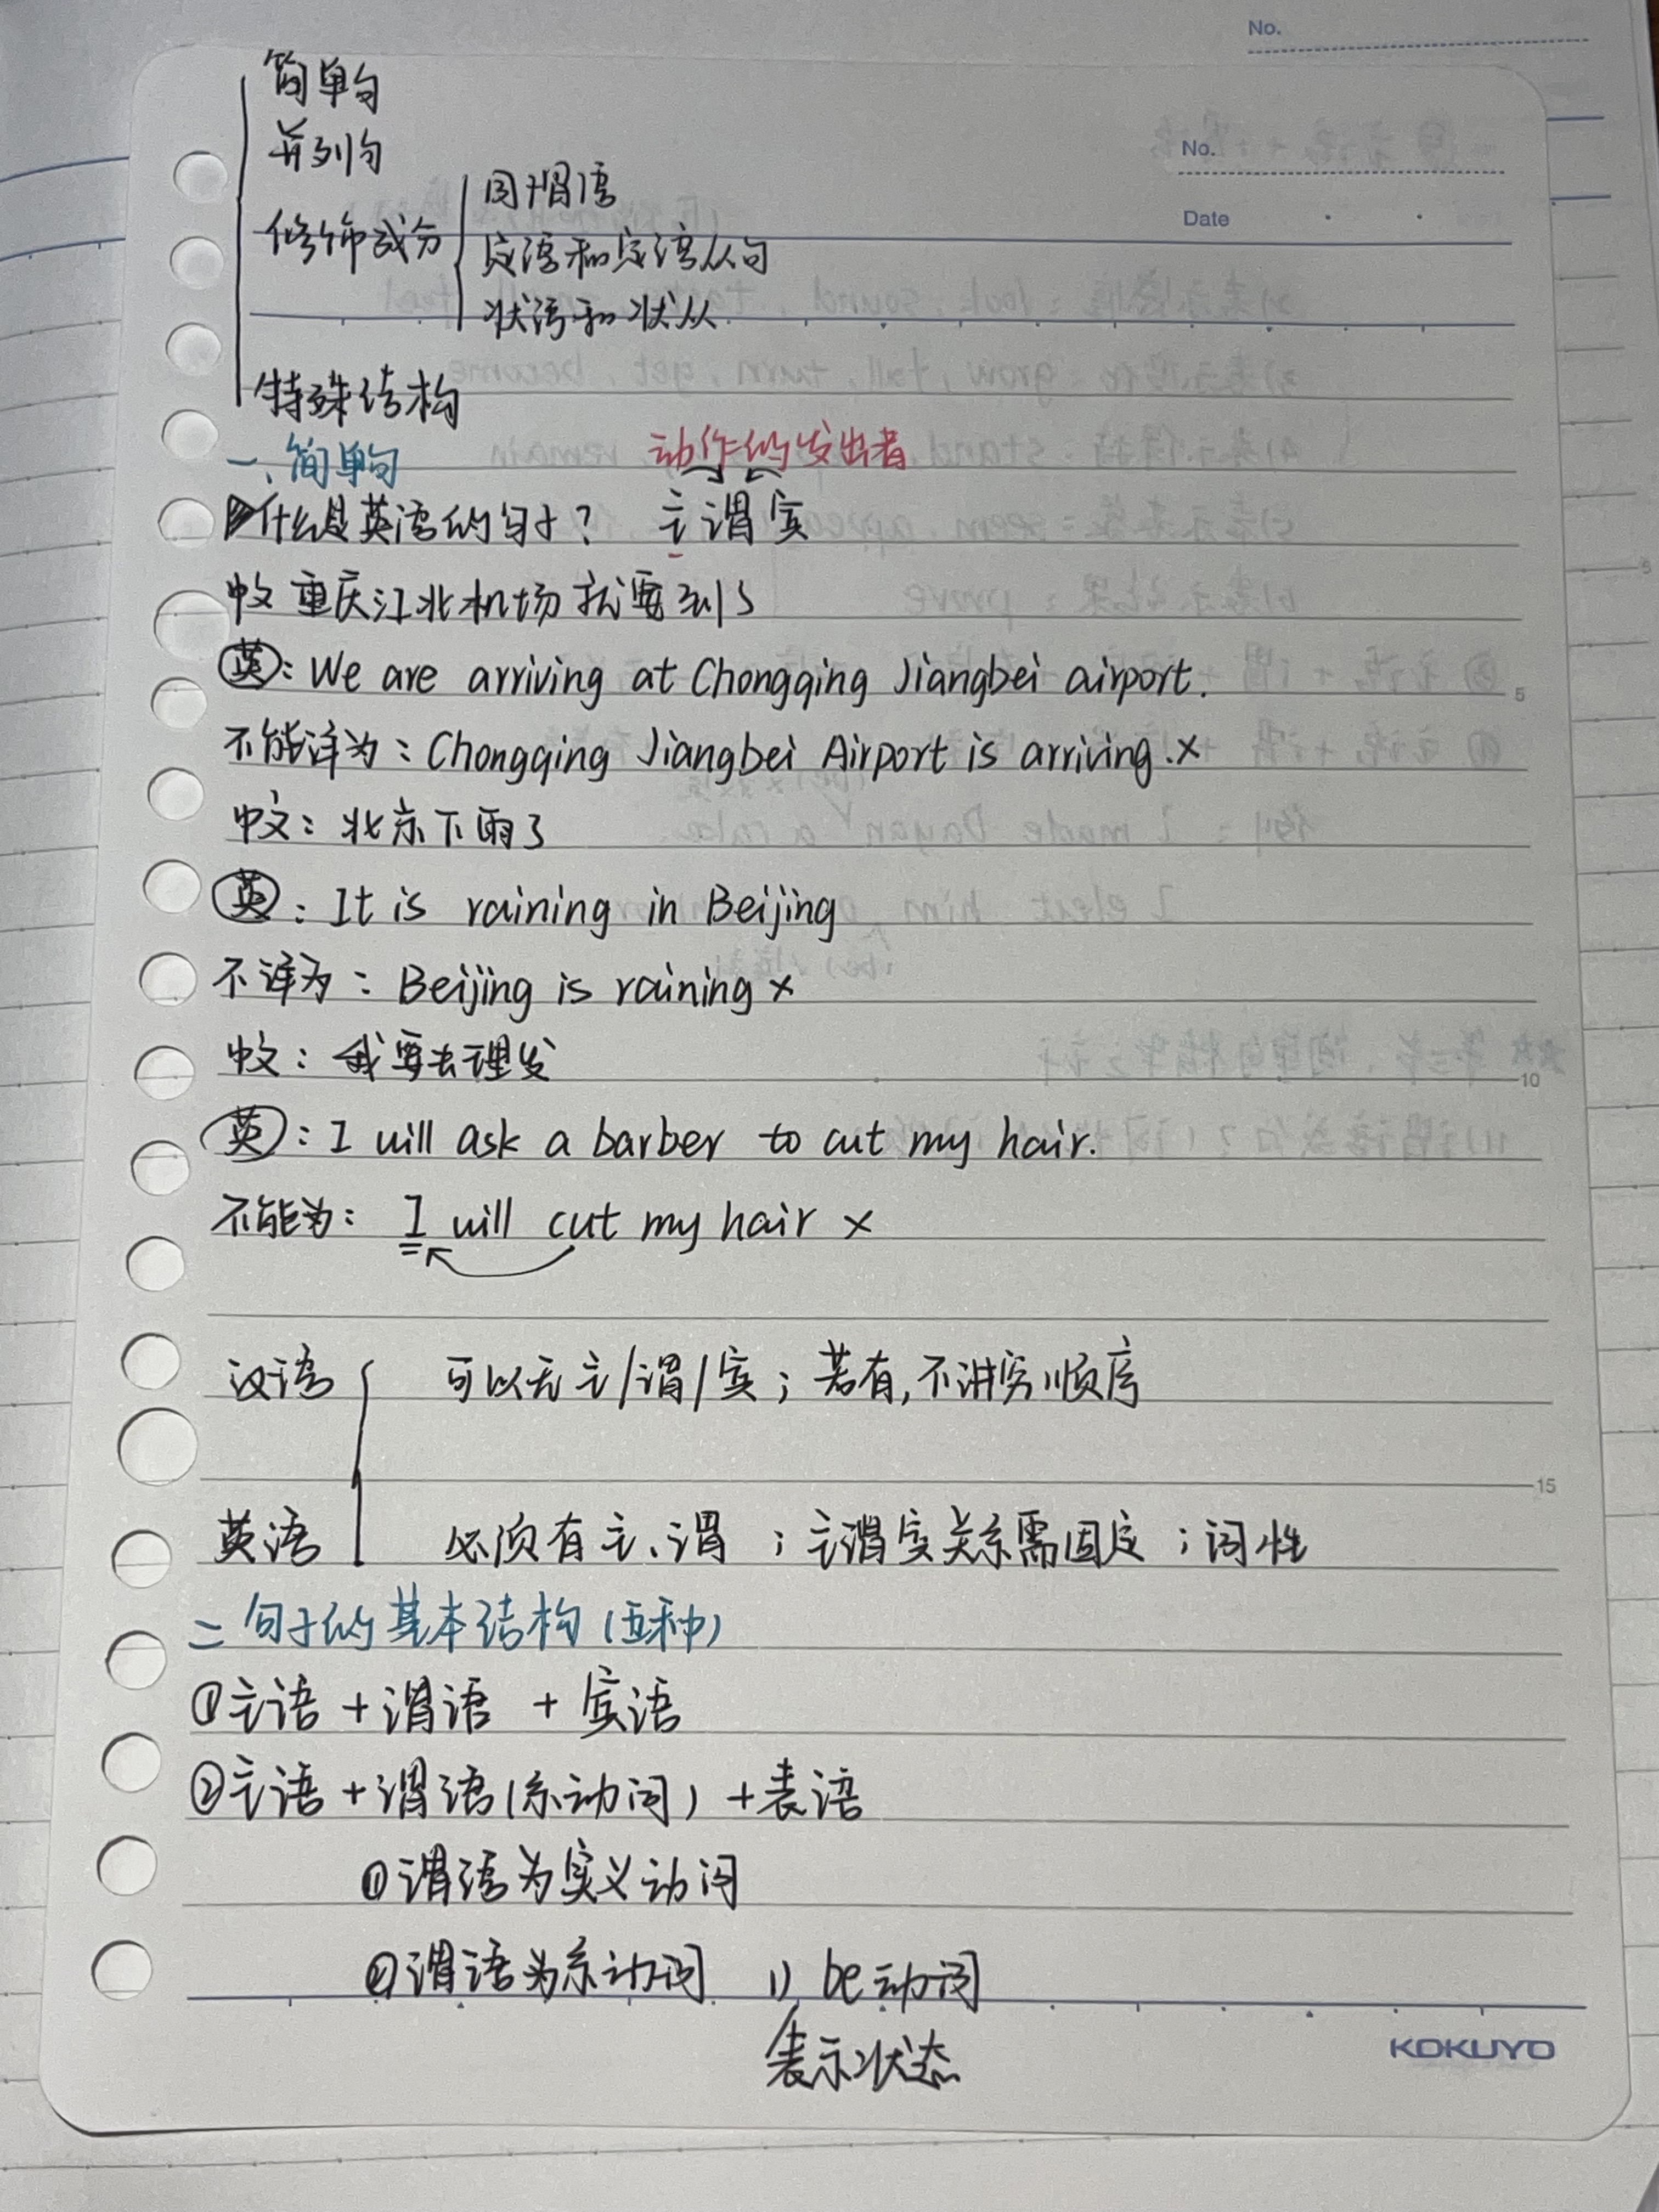 No.
No.
Date
简单句
并列句
修饰成分
同谓语
定语和定语从句
状语和状从
特殊结构
一、简单句
动作的发出者
什么是英语的句子? 主谓宾
中文 重庆江北机场就要到了
英: We are arriving at Chongqing Jiangbei airport.
不能译为: Chongqing Jiangbei Airport is arriving. ×
中文: 北京下雨了
英: It is raining in Beijing
不译为: Beijing is raining ×
中文: 我要去理发
英: I will ask a barber to cut my hair.
不能为: I will cut my hair ×
汉语 可以无主/谓/宾; 若有,不讲究顺序
英语 必须有主、谓 ; 主谓宾关系需固定 ; 词性
二 句子的基本结构 (五种)
①主语 + 谓语 + 宾语
②主语 + 谓语(系动词) + 表语
①谓语为实义动词
②谓语为系动词 1) be动词
表示状态
5
10
15
KOKUYO